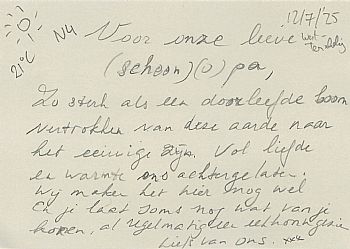 12/7/'25
21°C N4 Voor onze lieve
(schoon)(o)pa,
Zo sterk als een doorleefde boom
Vertrokken van deze aarde naar
het eeuwige zijn. Vol liefde
en warmte ons achtergelaten.
Wij maken het hier nog wel
En je laat soms nog wat van je
horen, al regelmatig een eekhoorn gezien
Liefs van ons. xxx